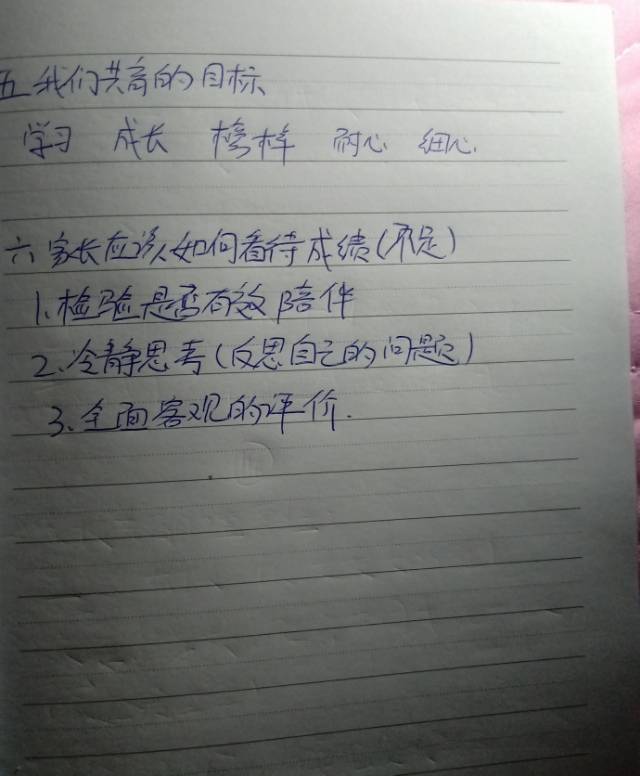 五 我们共育的目标
学习 成长 榜样 耐心 细心
六 家长应该如何看待成绩(不足)
1.检验是否有效陪伴
2.冷静思考(反思自己的问题)
3.全面客观的评价.